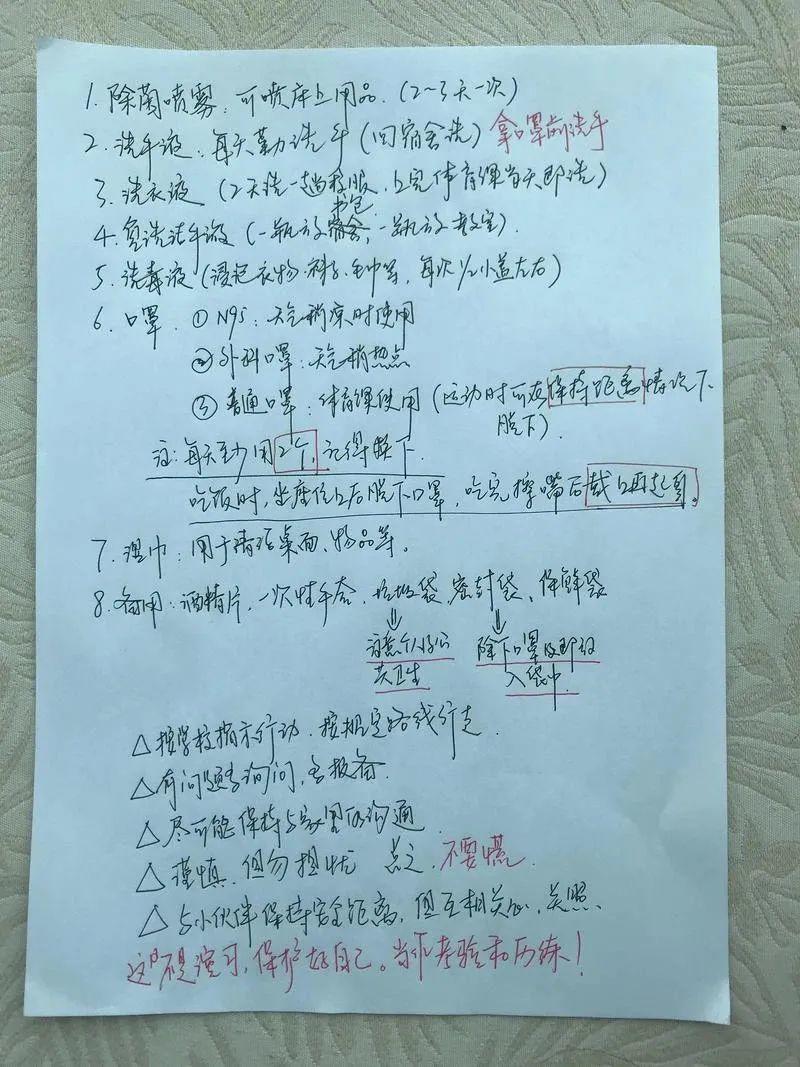 1. 除菌喷雾：可喷床上用品。（2～3天一次）
2. 洗手液：每天勤洗手（回宿舍洗）拿口罩前洗手
3. 洗衣液（2天洗一趟校服，上完体育课当天即洗）
书包
4. 免洗洗手液（一瓶放宿舍，一瓶放教室）.
5. 洗毒液（浸泡衣物、袜子、毛巾等，每次1/2小盖左右）
6. 口罩. ① N95：天气稍凉时使用
② 外科口罩：天气稍热点
③ 普通口罩：体育课使用（运动时可在保持距离情况下
脱下）.
注：每天至少用2个，记得换下.
吃饭时，坐座位上后脱下口罩，吃完擦嘴后戴上再起身。
7. 湿巾：用于清洁桌面、物品等。
8. 备用：酒精片，一次性手套，垃圾袋，密封袋、保鲜袋
注意个人公 除下口罩及即放
共卫生 入袋中.
△ 按学校指示行动. 按规定路线行走.
△ 有问题多询问，多报备.
△ 尽可能保持与家里的沟通
△ 谨慎. 但勿担忧 淡定. 不要慌.
△ 与小伙伴保持安全距离，但互相关心，关照.
这不是演习，保护好自己。当作考验和历练！